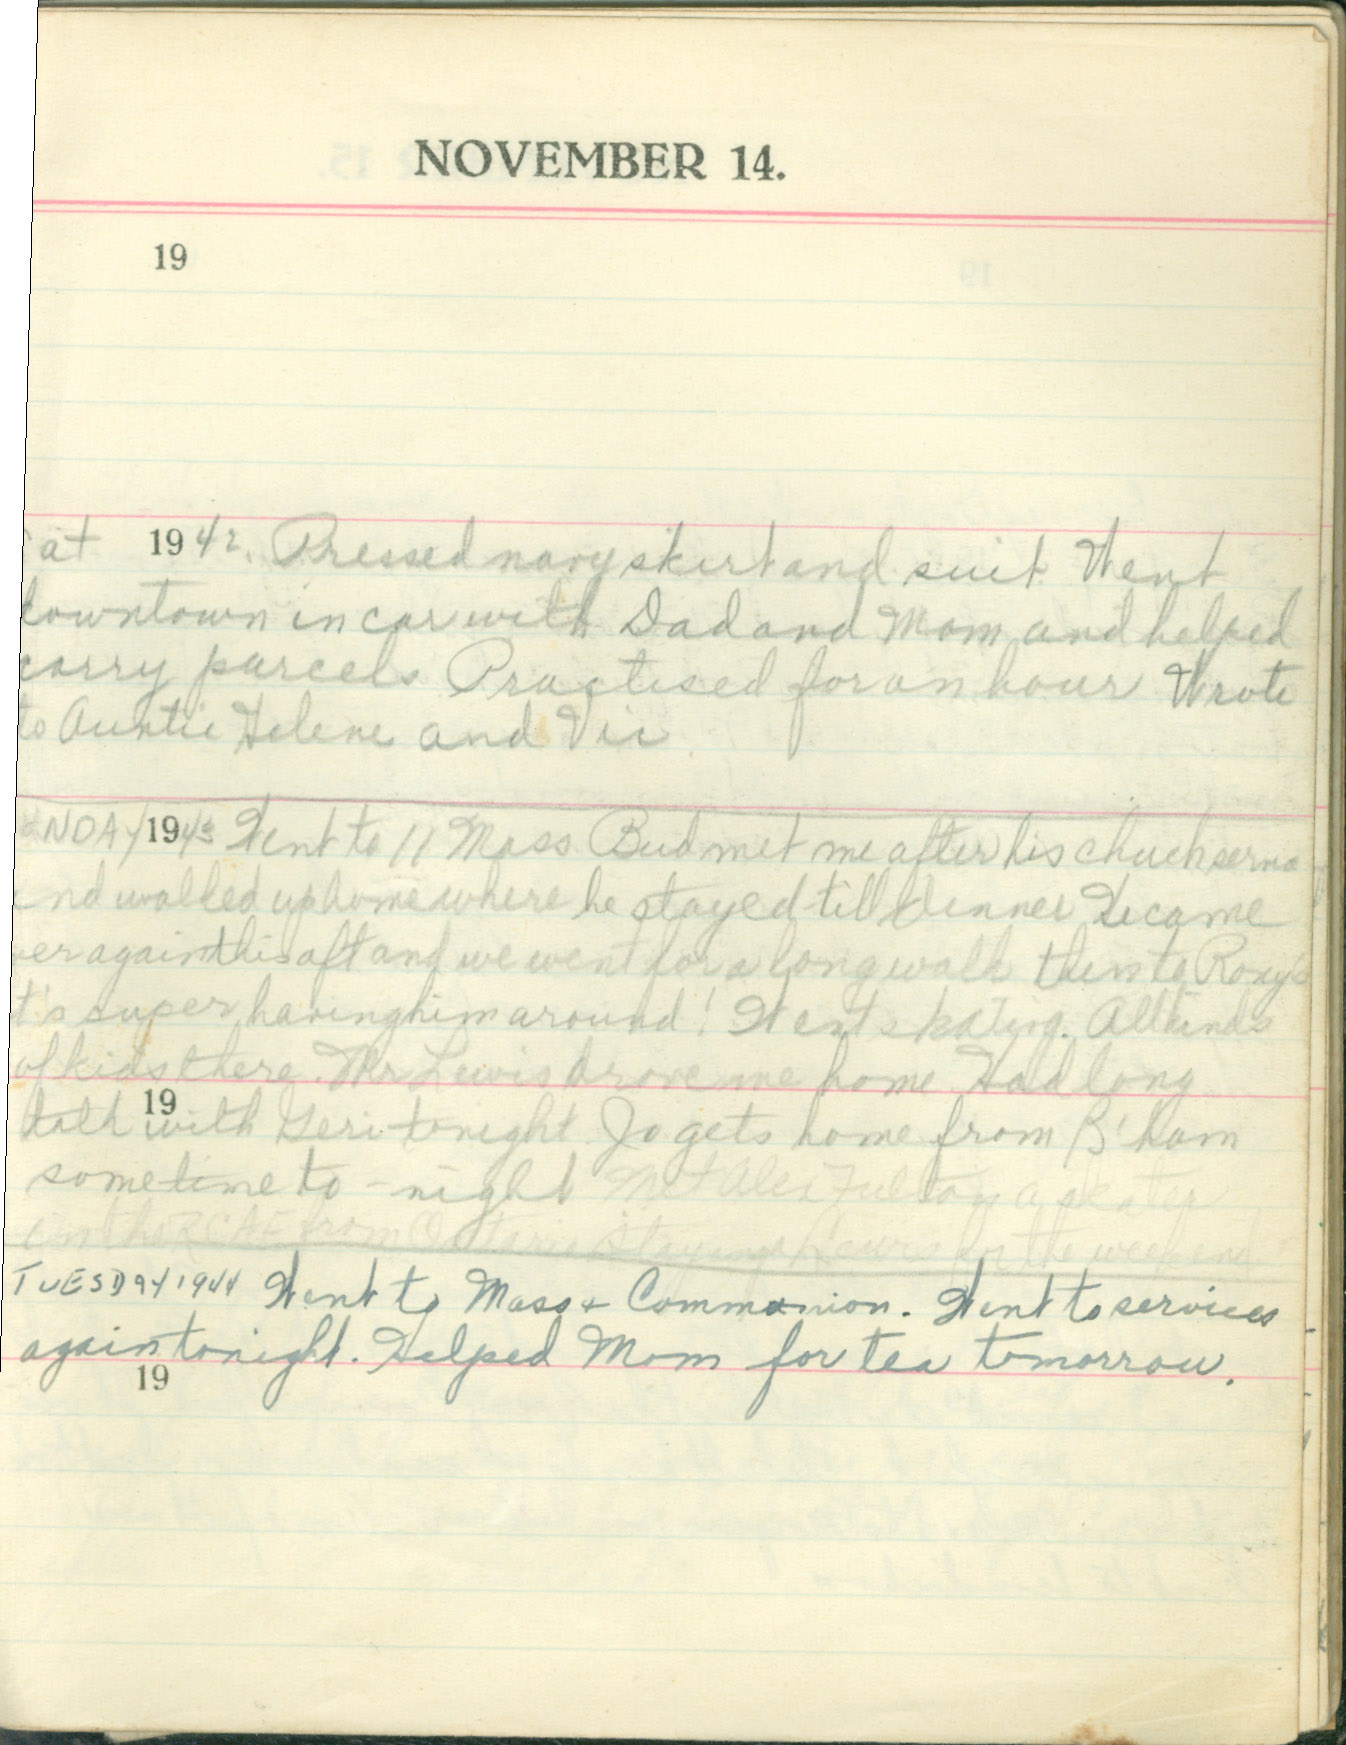 NOVEMBER 14.
19
at 1942. Pressed navy skirt and suit Went
downtown in car with Dad and Mom and helped
carry parcels Practised for an hour Wrote
to Auntie Helene and Vic
NDAY 1943 Went to 11 Mass Bud met me after his church
and walked up home where he stayed till dinner He came
ver again this aft and we went for a long walk then to Roxy's
t's super having him around! Went skating. All kinds
of kids there. Mr Lewis drove me home Had long
19
talk with Geri tonight Jo gets home from B'ham
sometime to-night Met Alex Fulton a skater
in the RCAF from Ontario staying Lewis for the weekend
TUESDAY 1944 Went to Mass + Communion. Went to services
again tonight. Helped Mom for tea tomorrow.
19